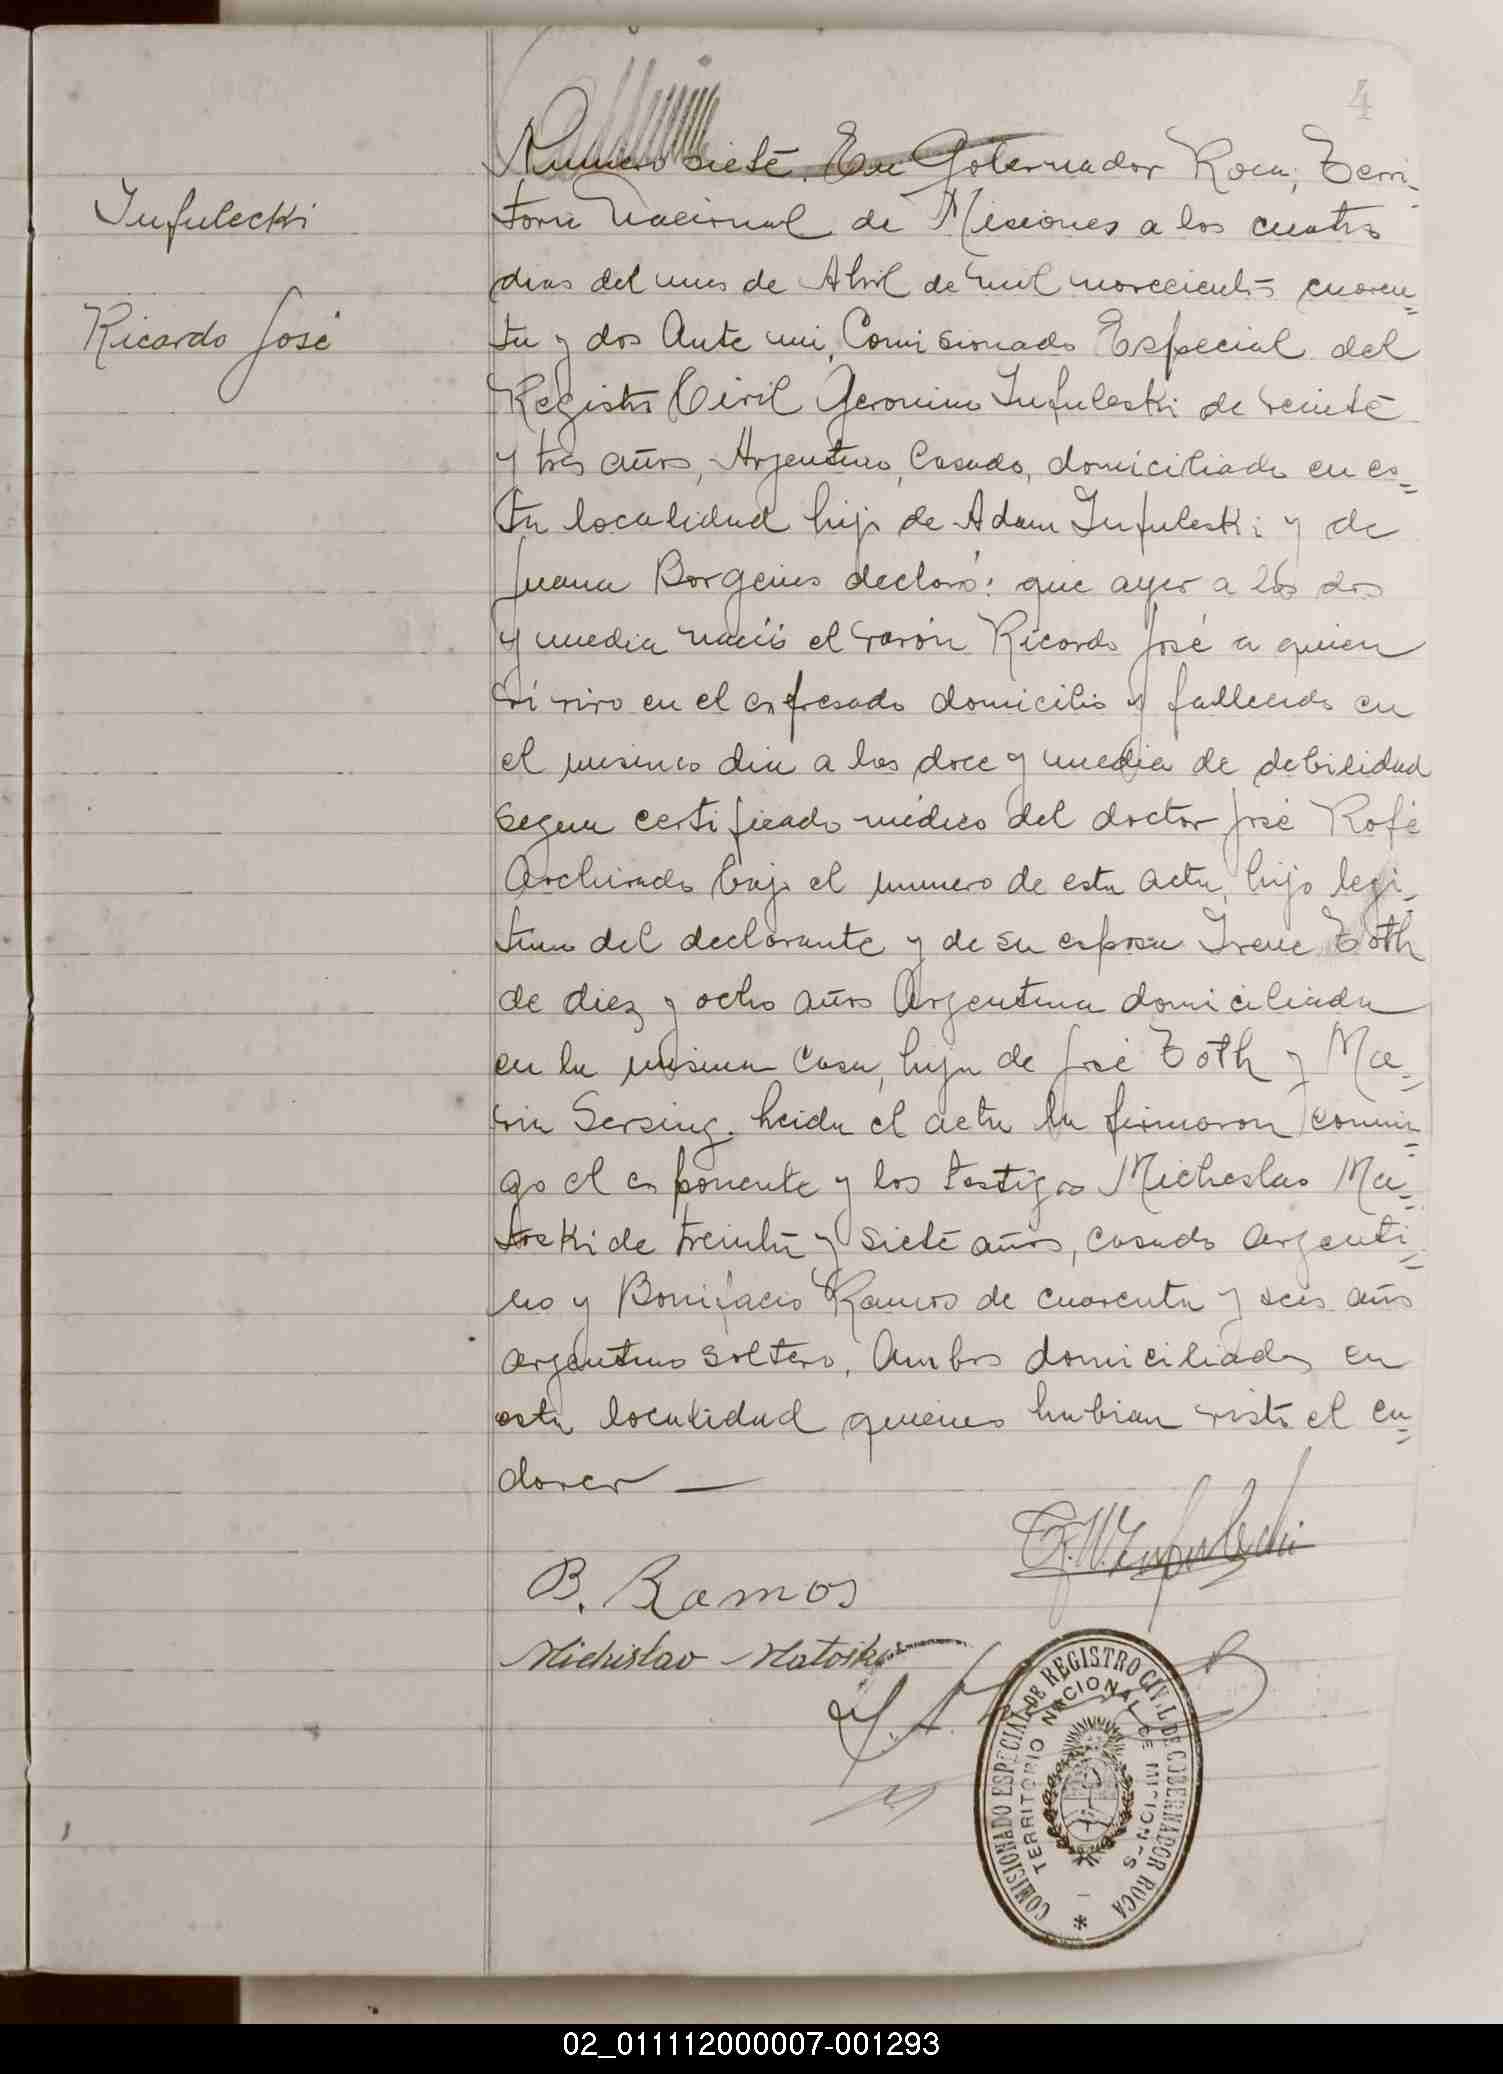 4
Numero siete. En Gobernador Roca, Terri-
torio Nacional de Misiones a los cuatro
dias del mes de Abril de mil novecientos cuaren=
ta y dos Ante mi, Comisionado Especial del
Registro Civil Geronimo Infuleski de veinte
y tres años, Argentino, Casado, domiciliado en es=
ta localidad hijo de Adam Infuleski y de
Juana Borgeius declaró: que ayer a las dos
y media nació el varón Ricardo José a quien
vi vivo en el expresado domicilio y fallecido en
el mismo dia a las doce y media de debilidad
segun certificado médico del doctor José Rofé
Archivado bajo el numero de esta acta, hijo legi=
timo del declarante y de su esposa Irene Toth
de diez y ocho años Argentina domiciliada
en la misma Casa, hija de José Toth y Ma=
ria Sersing. Leida el acta la firmaron conmi=
go el exponente y los testigos Micheslao Ma=
toski de treinta y siete años, casado argenti=
no y Bonifacio Ramos de cuarenta y seis años
argentino soltero, Ambos domiciliados en
esta localidad quienes habian visto el ca=
daver —
Infulecki
Ricardo José
B. Ramos
Michislao Matoski
COMISIONADO ESPECIAL DE REGISTRO CIVIL DE GOBERNADOR ROCA
TERRITORIO NACIONAL DE MISIONES
02_011112000007-001293